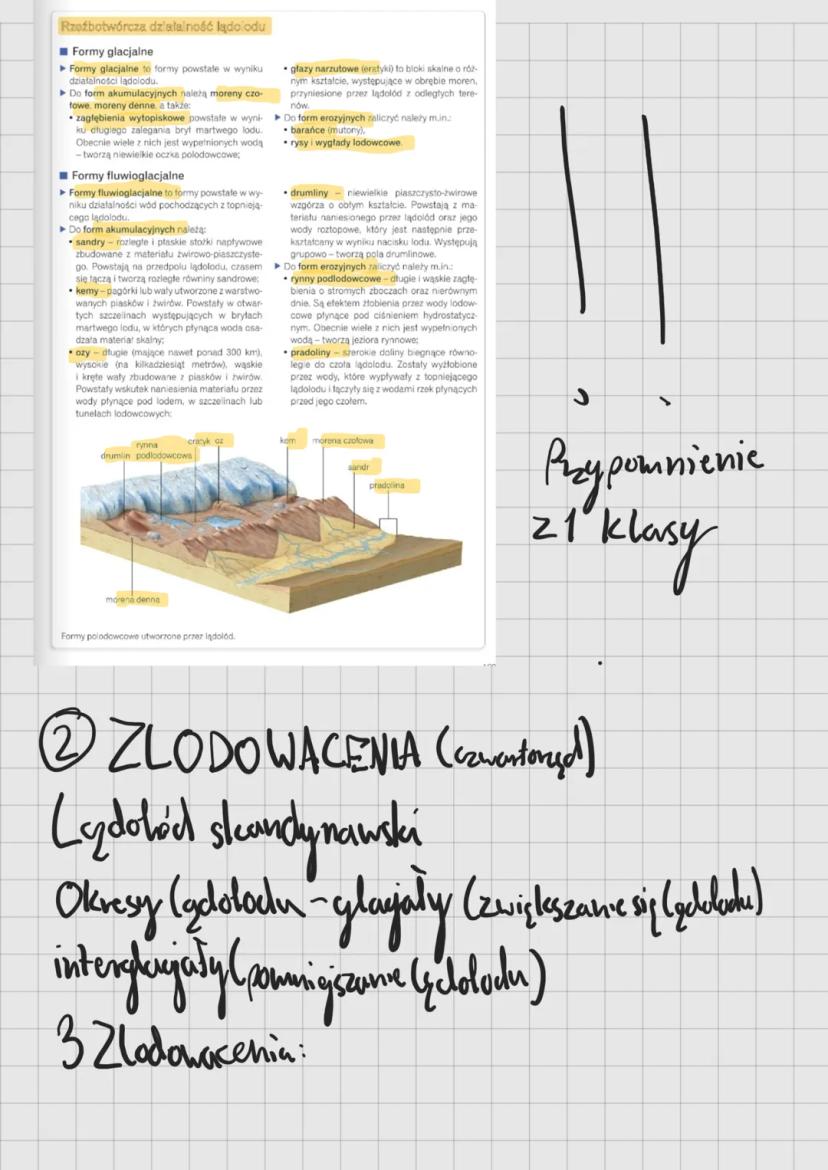 Rzeźbotwórcza działalność lądolodu
Formy glacjalne
Formy glacjalne to formy powstałe w wyniku
działalności lądolodu.
Do form akumulacyjnych należą moreny czo-
łowe, moreny denne, a także:
• zagłębienia wytopiskowe powstałe w wyni-
ku długiego zalegania brył martwego lodu.
Obecnie wiele z nich jest wypełnionych wodą
– tworzą niewielkie oczka polodowcowe;
• głazy narzutowe (eratyki) to bloki skalne o róż-
nym kształcie, występujące w obrębie moren,
przyniesione przez lądolód z odległych tere-
nów.
Do form erozyjnych zaliczyć należy m.in.:
• barańce (mutony),
• rysy i wygłady lodowcowe.
Formy fluwioglacjalne
Formy fluwioglacjalne to formy powstałe w wy-
niku działalności wód pochodzących z topnieją-
cego lądolodu.
Do form akumulacyjnych należą:
• sandry – rozległe i płaskie stożki napływowe
zbudowane z materiału żwirowo-piaszczyste-
go. Powstają na przedpolu lądolodu, czasem
się łączą i tworzą rozległe równiny sandrowe;
• kemy – pagórki lub wały utworzone z warstwo-
wanych piasków i żwirów. Powstały w otwar-
tych szczelinach występujących w bryłach
martwego lodu, w których płynąca woda osa-
dzała materiał skalny;
• ozy – długie (mające nawet ponad 300 km),
wysokie (na kilkadziesiąt metrów), wąskie
i kręte wały zbudowane z piasków i żwirów.
Powstały wskutek naniesienia materiału przez
wody płynące pod lodem, w szczelinach lub
tunelach lodowcowych;
• drumliny – niewielkie piaszczysto-żwirowe
wzgórza o obłym kształcie. Powstają z ma-
teriału naniesionego przez lądolód oraz jego
wody roztopowe, który jest następnie prze-
kształcany w wyniku nacisku lodu. Występują
grupowo – tworzą pola drumlinowe.
Do form erozyjnych zaliczyć należy m.in.:
• rynny podlodowcowe – długie i wąskie zagłę-
bienia o stromych zboczach oraz nierównym
dnie. Są efektem żłobienia przez wody lodow-
cowe płynące pod ciśnieniem hydrostatycz-
nym. Obecnie wiele z nich jest wypełnionych
wodą – tworzą jeziora rynnowe;
• pradoliny – szerokie doliny biegnące równo-
legle do czoła lądolodu. Zostały wyżłobione
przez wody, które wypływały z topniejącego
lądolodu i łączyły się z wodami rzek płynących
przed jego czołem.
drumlin
rynna
podlodowcowa
eratyk
oz
kem
morena czołowa
sandr
pradolina
morena denna
Formy polodowcowe utworzone przez lądolód.
!!
Przypomnienie
z 1 klasy
② ZLODOWACENIA (czwartorzęd)
Lądolód skandynawski
Okresy lądolodu - glacjały (zwiększanie się lądolodu)
interglacjały (pomniejszanie lądolodu)
3 Zlodowacenia: